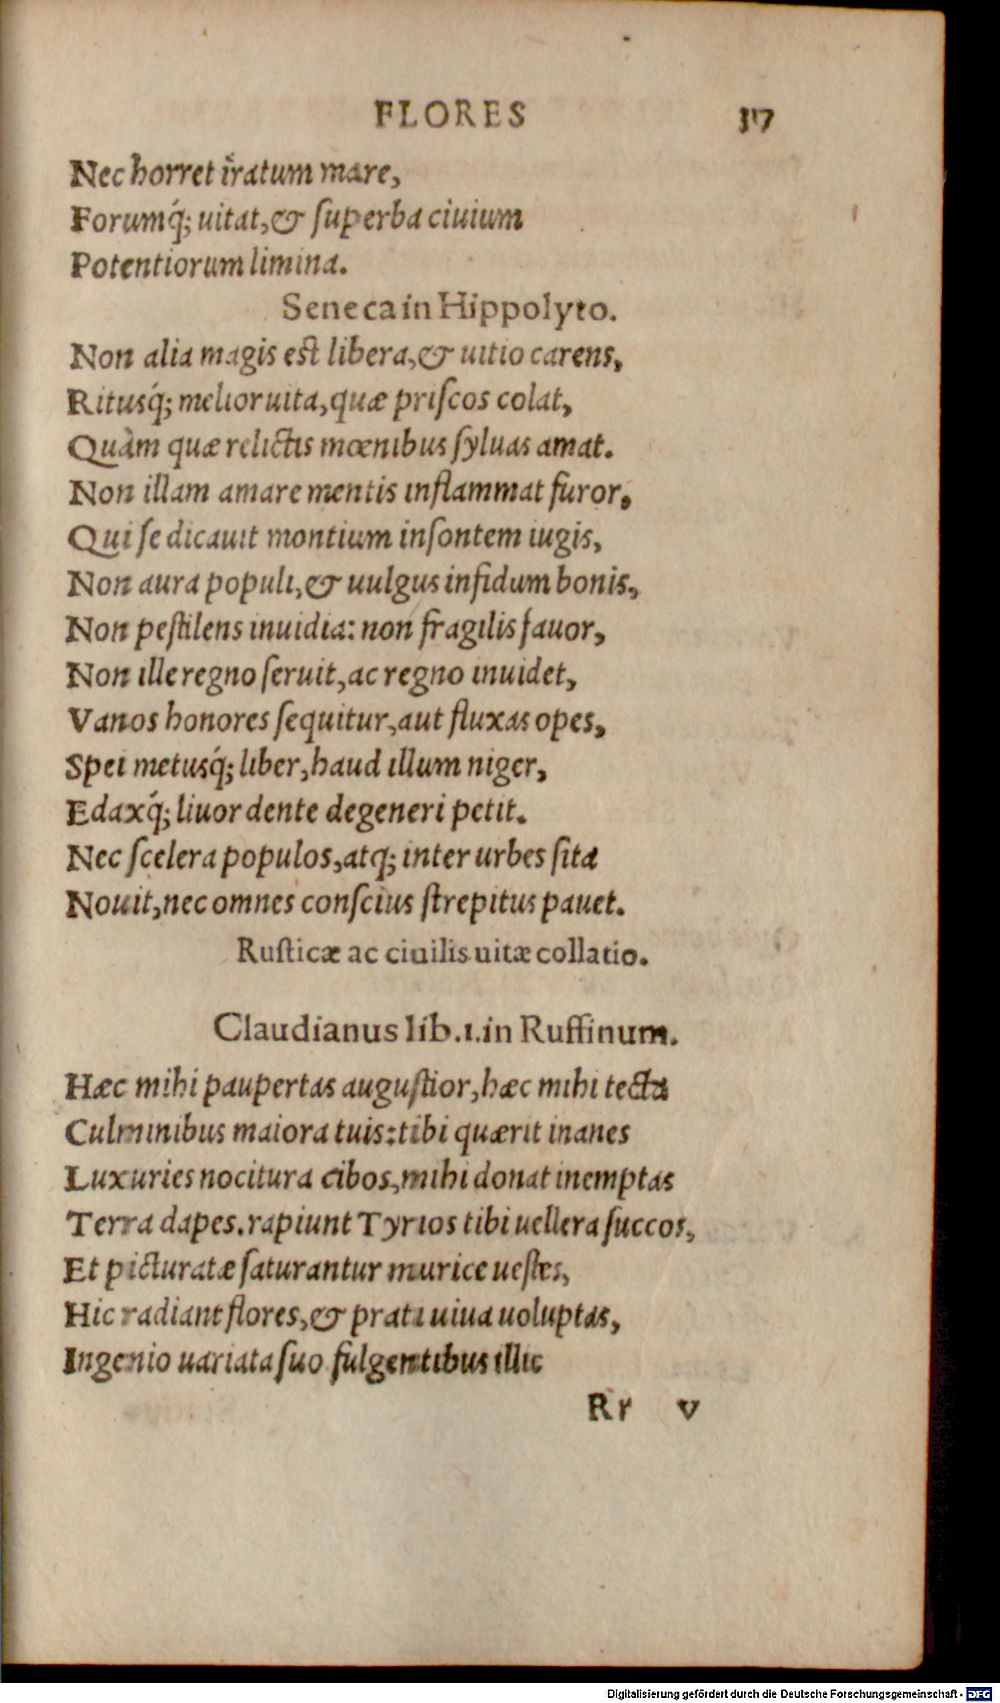 FLORES 317
Nec horret iratum mare,
Forumq́; uitat, & ſuperba ciuium
Potentiorum limina.
Seneca in Hippolyto.
Non alia magis eſt libera, & uitio carens,
Ritusq́; melior uita, quæ priſcos colat,
Quàm quæ relictis mœnibus ſyluas amat.
Non illam amare mentis inflammat furor,
Qui ſe dicauit montium inſontem iugis,
Non aura populi, & uulgus infidum bonis,
Non peſtilens inuidia: non fragilis fauor,
Non ille regno ſeruit, ac regno inuidet,
Vanos honores ſequitur, aut fluxas opes,
Spei metusq́; liber, haud illum niger,
Edaxq́; liuor dente degeneri petit.
Nec ſcelera populos, atq; inter urbes ſita
Nouit, nec omnes conſcius ſtrepitus pauet.
Ruſticæ ac ciuilis uitæ collatio.
Claudianus lib.1. in Ruffinum.
Hæc mihi paupertas auguſtior, hæc mihi tecta
Culminibus maiora tuis: tibi quærit inanes
Luxuries nocitura cibos, mihi donat inemptas
Terra dapes. rapiunt Tyrios tibi uellera ſuccos,
Et picturatæ ſaturantur murice ueſtes,
Hic radiant flores, & prati uiua uoluptas,
Ingenio uariata ſuo fulgentibus illic
Rr v
Digitalisierung gefördert durch die Deutsche Forschungsgemeinschaft - DFG